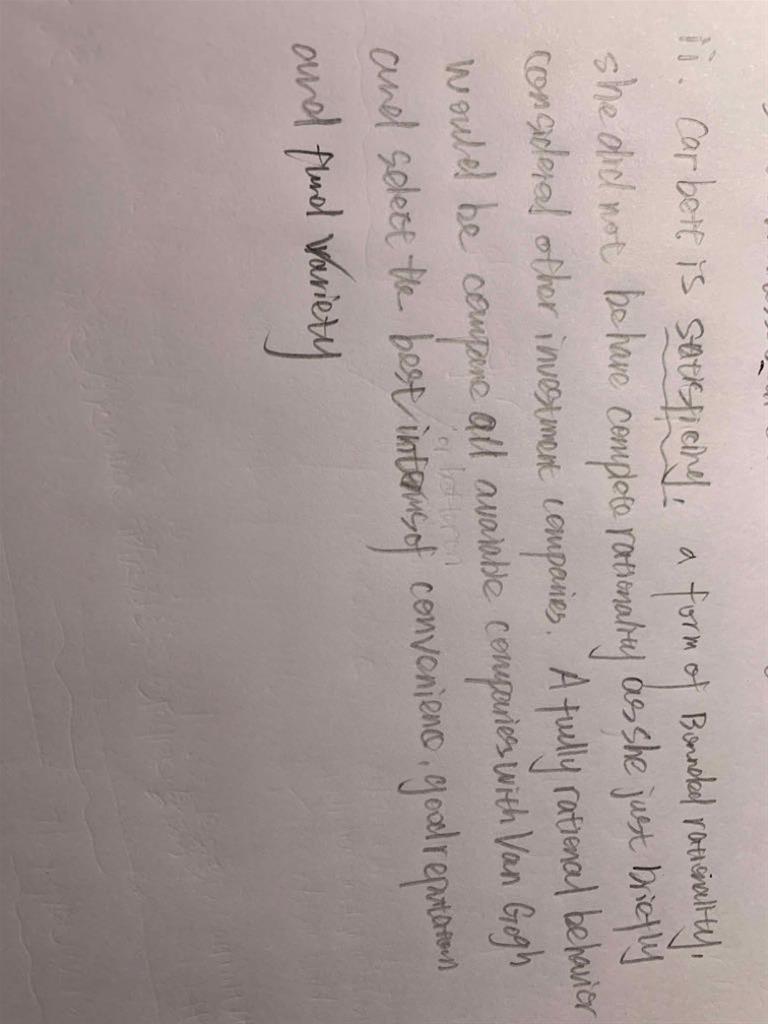 ii. Carbett is satisficing, a form of Bounded rationality,
she did not behave complete rationality as she just briefly
considered other investment companies. A fully rational behavior
would be compare all available companies with Van Gogh
and select the best in terms of convenienc, good reputation
and fund variety